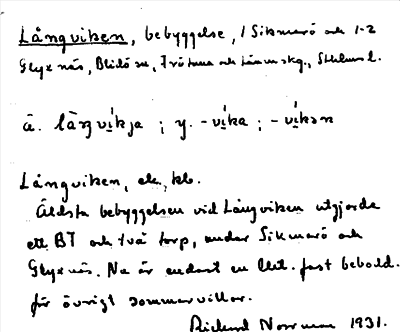 Långviken, bebyggelse, 1 Sikmarö och 1-2
Glyxnäs, Blidö sn, Frötuna och Länna skg., Sthlms l.
ä. låŋvikja ; y. -vi̍ka ; -vi̍kən
Långviken, ek., kb.
Äldsta bebyggelsen vid Långviken utgjorde
ett BT och två torp, under Sikmarö och
Glyxnäs. Nu är endast en lht. fast bebodd.
för övrigt sommarvillor.
Rickard Norrman 1931.